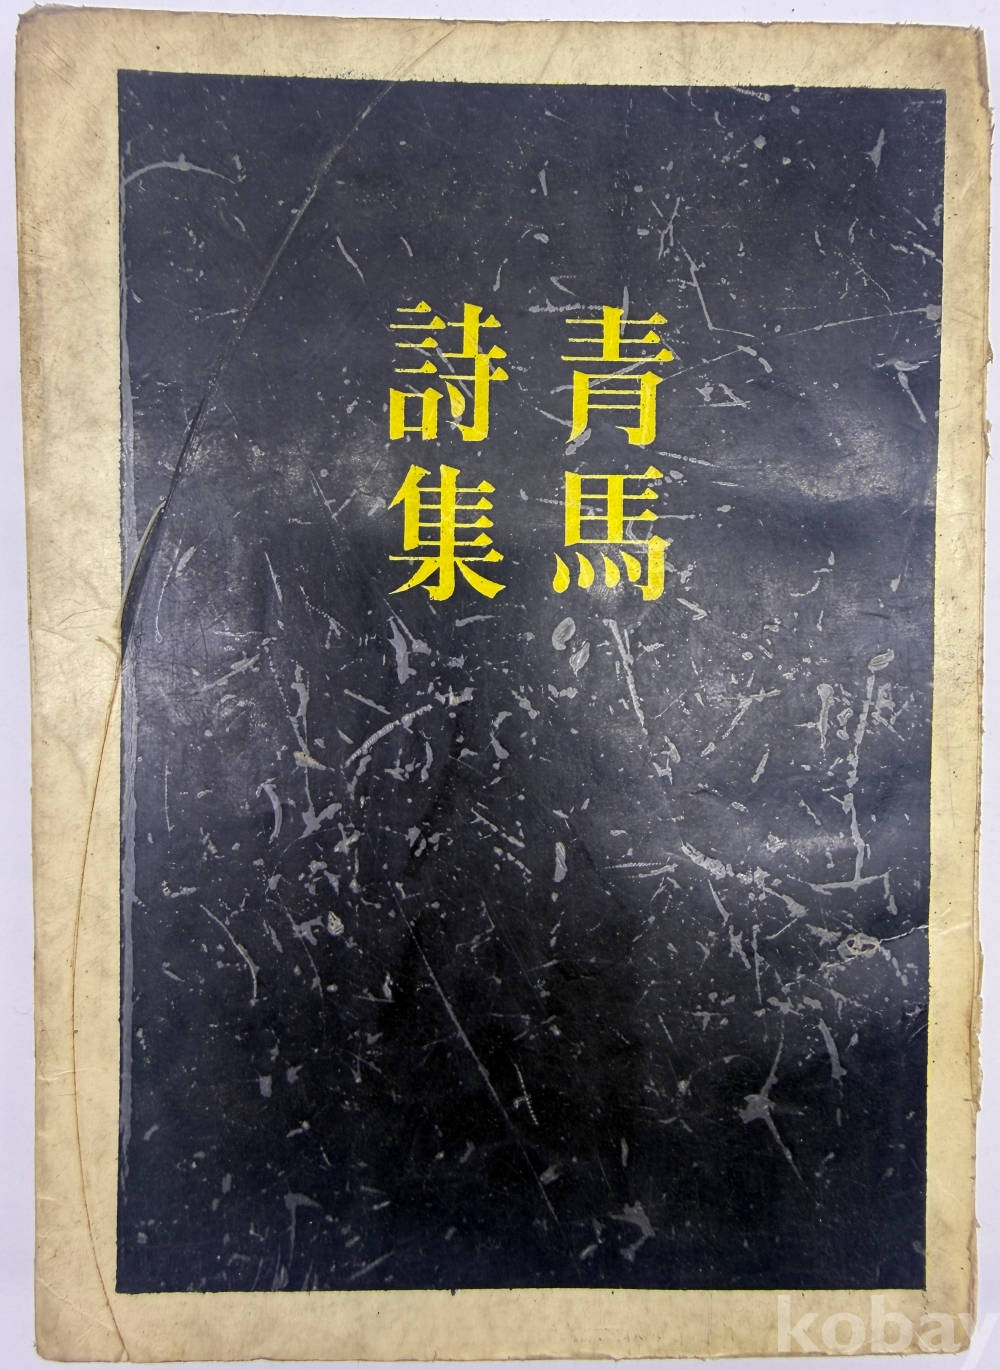 青馬
詩集
kobay